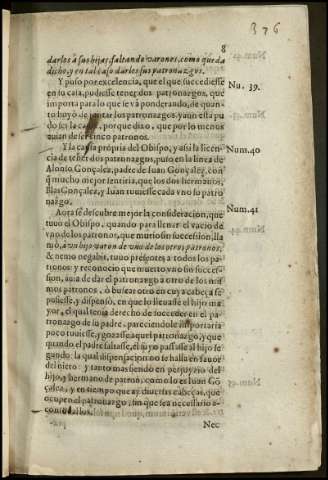 376
8
darlos à sus hijas, faltando varones, como queda
dicho, y en tal caso darles sus patronazgos.
Y puso por excelencia, que el que sucediesse
en su casa, pudiesse tener dos patronazgos, que
importa para lo que se và ponderando, de quan-
to huyò de juntar los patronazgos, ya un esta pu-
do ser la causa, porque dixo, que por lo menos
quian de ser cinco patronos.
Nu. 39.
Y la cassa propria del Obispo, y assi la licen-
cia de tener dos patronazgos, puso en la linea de
Alonso Gonçalez, padre de Iuan Gonçalez, con
quien mucho mejor se miraria, que los dos hermanos,
Blas Gonçalez, y Iuan tuuiesse cada vno su patro
nazgo.
Num. 40
Aora se descubre mejor la consideracion, que
tuuo el Obispo, quando para llenar el vacio de
vno de los patronos, que murio sin succession, lla
mò, à vn hijo varon de vno de los otros patronos,
& nemo negabit, tuuo presentes à todos los pa-
tronos y reconociò que muerto vno sin succes-
sion, auia de dar el patronazgo à otro de los mis
mos patronos, ò buscar otro en cuya cabeça se
pusiesse, y dispensò, en que lo lleuasse el hijo ma
yor, el qual tenia derecho de succeder en el pa-
tronazgo de su padre, pareciendole importaria
poco tuuiesse, y gozasse aquel patronazgo, y que
quando el padre faltasse, el suyo passasse al hijo se
gundo: la qual dispensacion no se halla en fauor
del nieto: y tanto mas siendo en perjuyzio del
hijo, y hermano de patron, como lo es Iuan Gõ
çalez, y en tiempo que ay diuersas cabeças, que
ocupen el patronazgo, sin que sea necessario a-
comularlos.
Num. 41
Nec